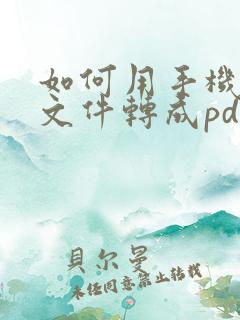 如何用手機
文件轉成pd
貝尔曼
未经同意禁止转载